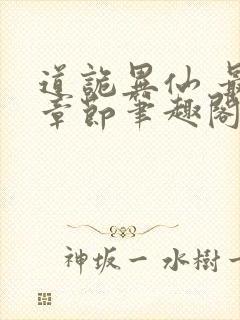 道詭異仙 最
章節筆趣閣
神坂一 水樹一